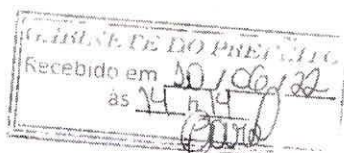 GABINETE DO PREFEITO
Recebido em 20/06/22
às 14 h 14